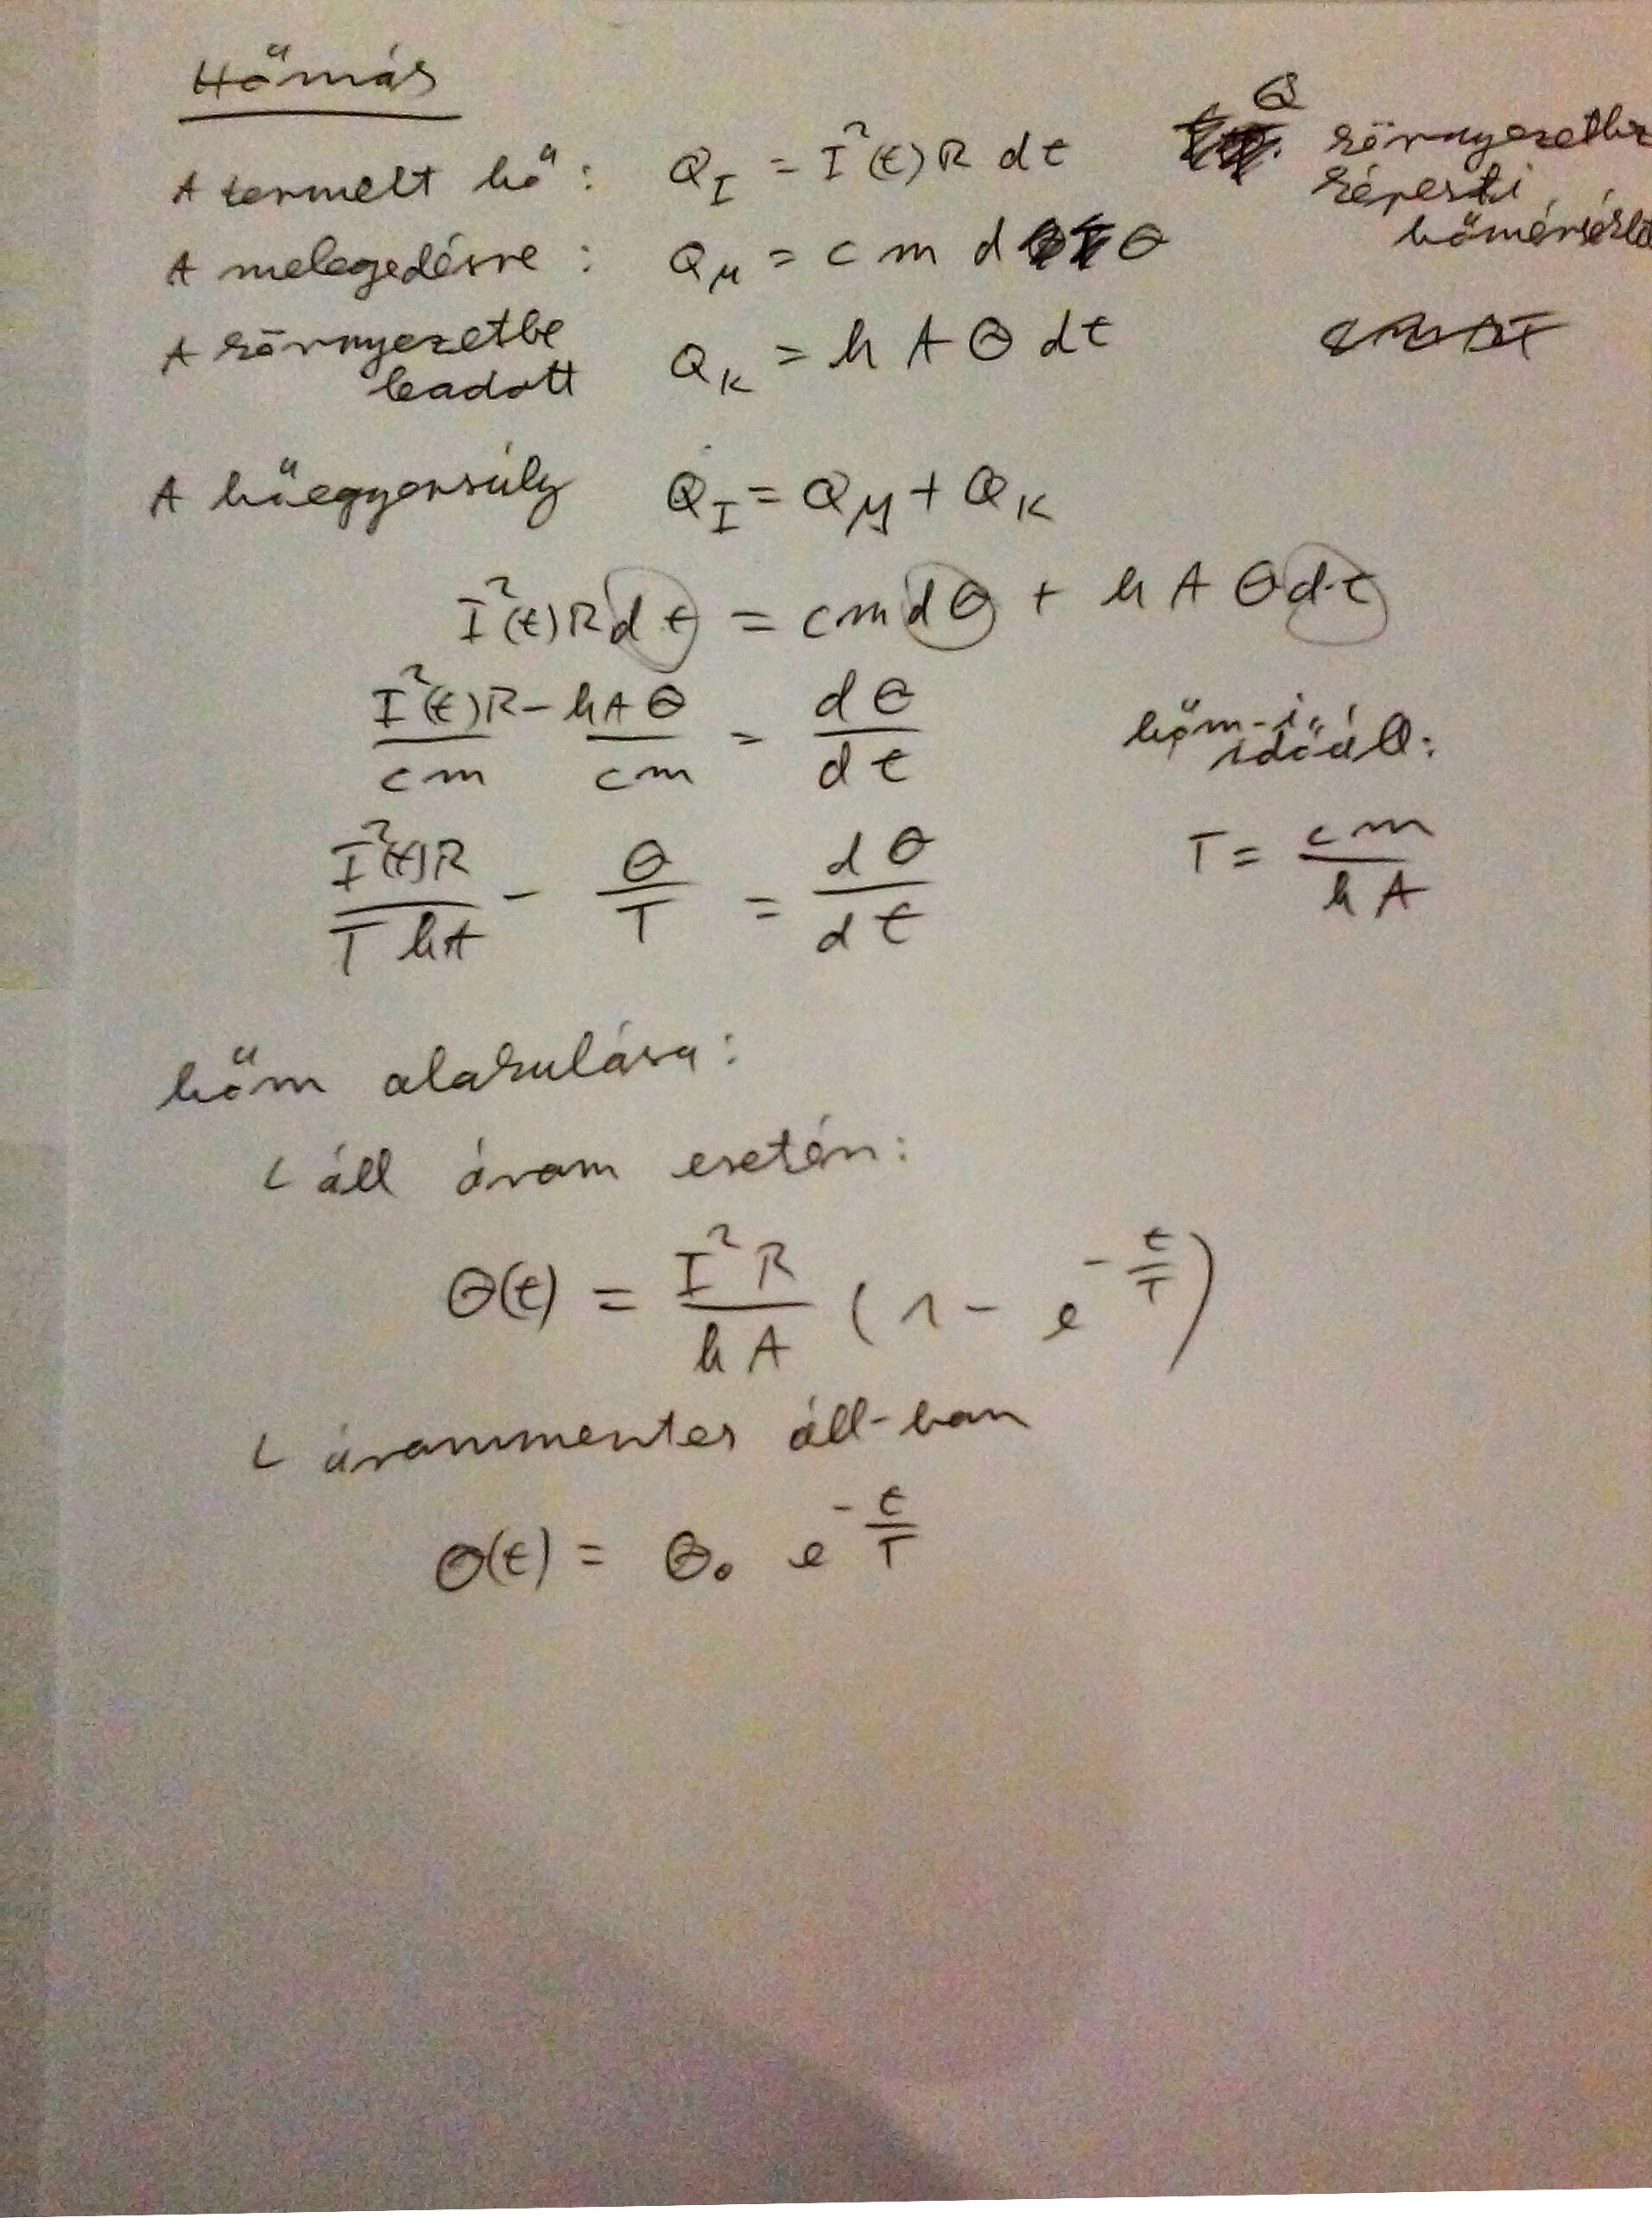 Hőmás
A termelt hő: Q_I = I²(t) R dt
Θ környezethez
képesti
hőmérséklet
A melegedésre: Q_M = c m d Θ
A környezetbe
leadott Q_K = h A Θ dt
A hőegyensúly Q_I = Q_M + Q_K
I²(t) R dt = c m dΘ + h A Θ dt
I²(t)R/cm − hAΘ/cm = dΘ/dt
hőm-i
időáll:
I²(t)R/T hA − Θ/T = dΘ/dt
T = cm/hA
hőm alakulása:
└ áll áram esetén:
Θ(t) = I²R/hA (1 − e^(−t/T))
└ árammentes áll-ban
Θ(t) = Θ₀ e^(−t/T)